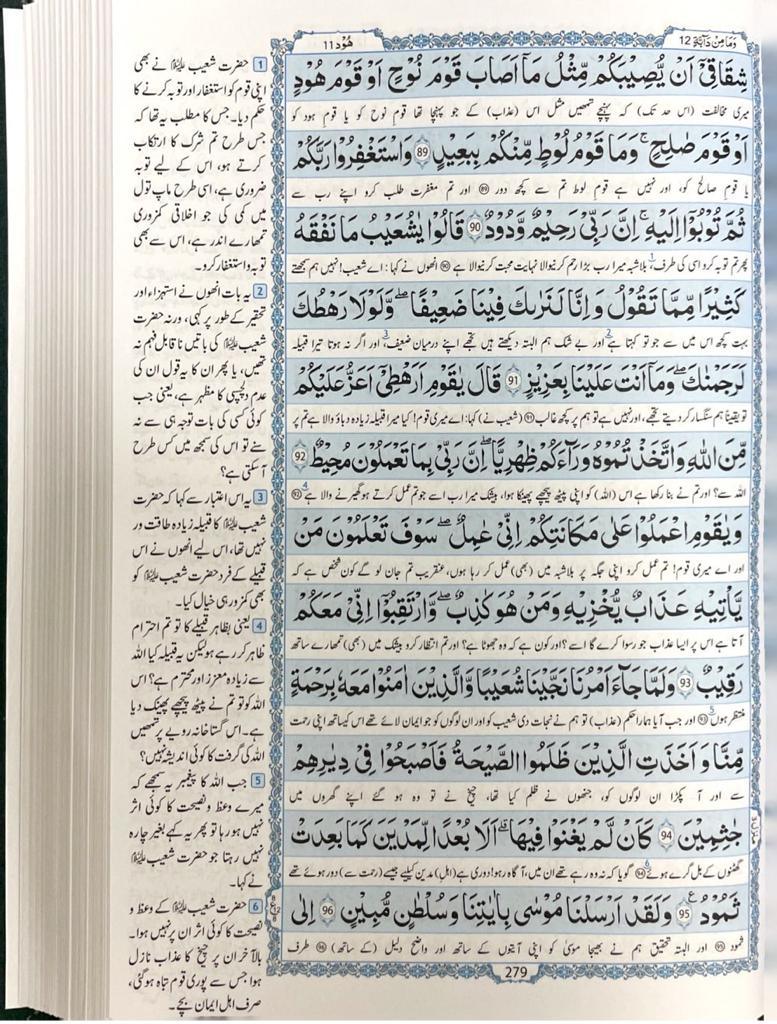 وَمَا مِنْ دَآبَّةٍ 12
هُوْد 11
شِقَاقِیْۤ اَنْ یُّصِیْبَكُمْ مِّثْلُ مَاۤ اَصَابَ قَوْمَ نُوْحٍ اَوْ قَوْمَ هُوْدٍ
میری مخالفت (اس حد تک) کہ پہنچے تمھیں مثل اس (عذاب) کے جو پہنچا تھا قوم نوح کو یا قوم ہود کو
اَوْ قَوْمَ صٰلِحٍ ؕ وَمَا قَوْمُ لُوْطٍ مِّنْكُمْ بِبَعِیْدٍ 89 وَاسْتَغْفِرُوْا رَبَّكُمْ
یا قوم صالح کو، اور نہیں ہے قوم لوط تم سے کچھ دور 89 اور تم مغفرت طلب کرو اپنے رب سے
ثُمَّ تُوْبُوْۤا اِلَیْهِ ؕ اِنَّ رَبِّیْ رَحِیْمٌ وَّدُوْدٌ 90 قَالُوْا یٰشُعَیْبُ مَا نَفْقَهُ
پھر تم توبہ کرو اسی کی طرف، 1 بلاشبہ میرا رب بڑا رحم کرنیوالا نہایت محبت کرنیوالا ہے 90 انھوں نے کہا: اے شعیب! نہیں ہم سمجھتے
كَثِیْرًا مِّمَّا تَقُوْلُ وَاِنَّا لَنَرٰىكَ فِیْنَا ضَعِیْفًا ۚ وَلَوْلَا رَهْطُكَ
بہت کچھ اس میں سے جو تو کہتا ہے 2 اور بے شک ہم البتہ دیکھتے ہیں تجھے اپنے درمیان ضعیف، 3 اور اگر نہ ہوتا تیرا قبیلہ
لَرَجَمْنٰكَ ؗ وَمَاۤ اَنْتَ عَلَیْنَا بِعَزِیْزٍ 91 قَالَ یٰقَوْمِ اَرَهْطِیْۤ اَعَزُّ عَلَیْكُمْ
تو یقیناً ہم سنگسار کر دیتے تجھے، اور نہیں ہے تو ہم پر کچھ غالب 91 (شعیب نے) کہا: اے میری قوم! کیا میرا قبیلہ زیادہ دباؤ والا ہے تم پر
مِّنَ اللّٰهِ ؕ وَاتَّخَذْتُمُوْهُ وَرَآءَكُمْ ظِهْرِیًّا ؕ اِنَّ رَبِّیْ بِمَا تَعْمَلُوْنَ مُحِیْطٌ 92
اللہ سے؟ اور تم نے بنا رکھا ہے اس (اللہ) کو اپنی پیٹھ پیچھے پھینکا ہوا، بیشک میرا رب اسے جو تم عمل کرتے ہو گھیرنے والا ہے 4 92
وَیٰقَوْمِ اعْمَلُوْا عَلٰی مَكَانَتِكُمْ اِنِّیْ عَامِلٌ ؕ سَوْفَ تَعْلَمُوْنَ مَنْ
اور اے میری قوم! تم عمل کرو اپنی جگہ پر بلاشبہ میں (بھی) عمل کر رہا ہوں، عنقریب تم جان لو گے کون شخص ہے کہ
یَّاْتِیْهِ عَذَابٌ یُّخْزِیْهِ وَمَنْ هُوَ كَاذِبٌ ؕ وَارْتَقِبُوْۤا اِنِّیْ مَعَكُمْ
آتا ہے اس پر ایسا عذاب جو رسوا کرے گا اسے؟ اور کون ہے کہ وہ جھوٹا ہے؟ اور تم انتظار کرو بیشک میں (بھی) تمھارے ساتھ
رَقِیْبٌ 93 وَلَمَّا جَآءَ اَمْرُنَا نَجَّیْنَا شُعَیْبًا وَّالَّذِیْنَ اٰمَنُوْا مَعَهٗ بِرَحْمَةٍ
منتظر ہوں 5 93 اور جب آیا ہمارا حکم (عذاب) تو ہم نے نجات دی شعیب کو اور ان لوگوں کو جو ایمان لائے تھے اس کیساتھ اپنی رحمت
مِّنَّا وَاَخَذَتِ الَّذِیْنَ ظَلَمُوا الصَّیْحَةُ فَاَصْبَحُوْا فِیْ دِیَارِهِمْ
سے اور آ پکڑا ان لوگوں کو، جنھوں نے ظلم کیا تھا، چیخ نے تو وہ ہو گئے اپنے گھروں میں
جٰثِمِیْنَ 94 كَاَنْ لَّمْ یَغْنَوْا فِیْهَا ؕ اَلَا بُعْدًا لِّمَدْیَنَ كَمَا بَعِدَتْ
گھٹنوں کے بل گرے ہوئے 6 94 گویا کہ نہ وہ رہے تھے ان میں، آگاہ رہو! دوری ہے (اہل) مدین کیلیے جیسے (رحمت سے) دور ہوئے تھے
ثَمُوْدُ 95 وَلَقَدْ اَرْسَلْنَا مُوْسٰی بِاٰیٰتِنَا وَسُلْطٰنٍ مُّبِیْنٍ 96 اِلٰی
ثمود 95 اور البتہ تحقیق ہم نے بھیجا موسیٰ کو اپنی آیتوں کے ساتھ اور واضح دلیل (کے ساتھ) 96 طرف
279
1 حضرت شعیب علیہ السلام نے بھی
اپنی قوم کو استغفار اور توبہ کرنے کا
حکم دیا۔ جس کا مطلب یہ تھا کہ
جس طرح تم شرک کا ارتکاب
کرتے ہو، اس کے لیے توبہ
ضروری ہے، اسی طرح ماپ تول
میں کمی کی جو اخلاقی کمزوری
تمھارے اندر ہے، اس سے بھی
توبہ و استغفار کرو۔
2 یہ بات انھوں نے استہزاء اور
تحقیر کے طور پر کہی، ورنہ حضرت
شعیب علیہ السلام کی باتیں ناقابل فہم نہ
تھیں، یا پھر ان کا یہ قول ان کی
عدم دلچسپی کا مظہر ہے، یعنی جب
کوئی کسی کی بات توجہ ہی سے نہ
سنے تو اس کی سمجھ میں کس طرح
آ سکتی ہے؟
3 یہ اس اعتبار سے کہا کہ حضرت
شعیب علیہ السلام کا قبیلہ زیادہ طاقت ور
نہیں تھا، اس لیے انھوں نے اس
قبیلے کے فرد حضرت شعیب علیہ السلام کو
بھی کمزور ہی خیال کیا۔
4 یعنی بظاہر قبیلے کا تو تم احترام
ظاہر کر رہے ہو لیکن یہ قبیلہ کیا اللہ
سے زیادہ معزز اور محترم ہے؟ اس
اللہ کو تو تم نے پیٹھ پیچھے پھینک دیا
ہے۔ اس گستاخانہ رویے پر تمھیں
اللہ کی گرفت کا کوئی اندیشہ نہیں؟
5 جب اللہ کا پیغمبر یہ سمجھے کہ
میرے وعظ و نصیحت کا کوئی اثر
نہیں ہو رہا تو پھر یہ کہے بغیر چارہ
نہیں رہتا جو حضرت شعیب علیہ السلام
نے کہا۔
6 حضرت شعیب علیہ السلام کے وعظ و
نصیحت کا کوئی اثر ان پر نہیں ہوا۔
بالآخر ان پر چیخ کا عذاب نازل
ہوا جس سے پوری قوم تباہ ہو گئی،
صرف اہل ایمان بچے۔